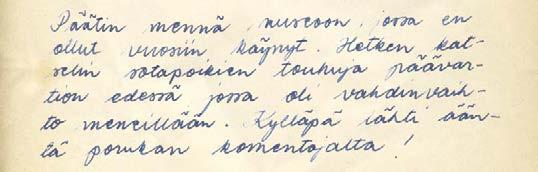 Päätin mennä museoon, jossa en
ollut vuosiin käynyt. Hetken kat-
selin sotapoikien touhuja päävar-
tion edessä jossa oli vahdinvaih-
to meneillään. Kylläpä lähti ään-
tä porukan komentajalta!